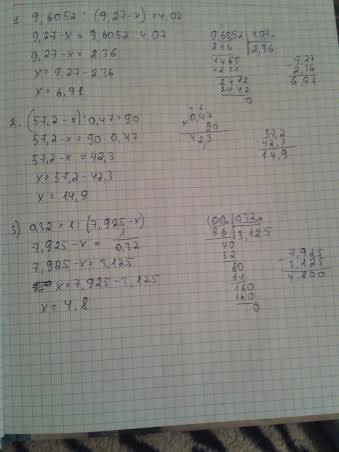 1. 9,6052 : (9,27-x) = 4,07
9,27-x = 9,6052 : 4,07
9,27-x = 2,36
x = 9,27-2,36
x = 6,91
9,6052 | 4,07
2,36
1465
1221
2442
2442
0
9,27
2,36
6,91
2. (57,2-x) : 0,47 = 90
57,2-x = 90 · 0,47
57,2-x = 42,3
x = 57,2-42,3
x = 14,9
0,47
90
42,3
57,2
42,3
14,9
3) 0,32 = 1 : (7,925-x)
7,925-x = 1/0,32
7,925-x = 3,125
x = 7,925-3,125
x = 4,8
100 | 0,32
96 | 3,125
40
32
80
64
160
160
0
7,925
3,125
4,800